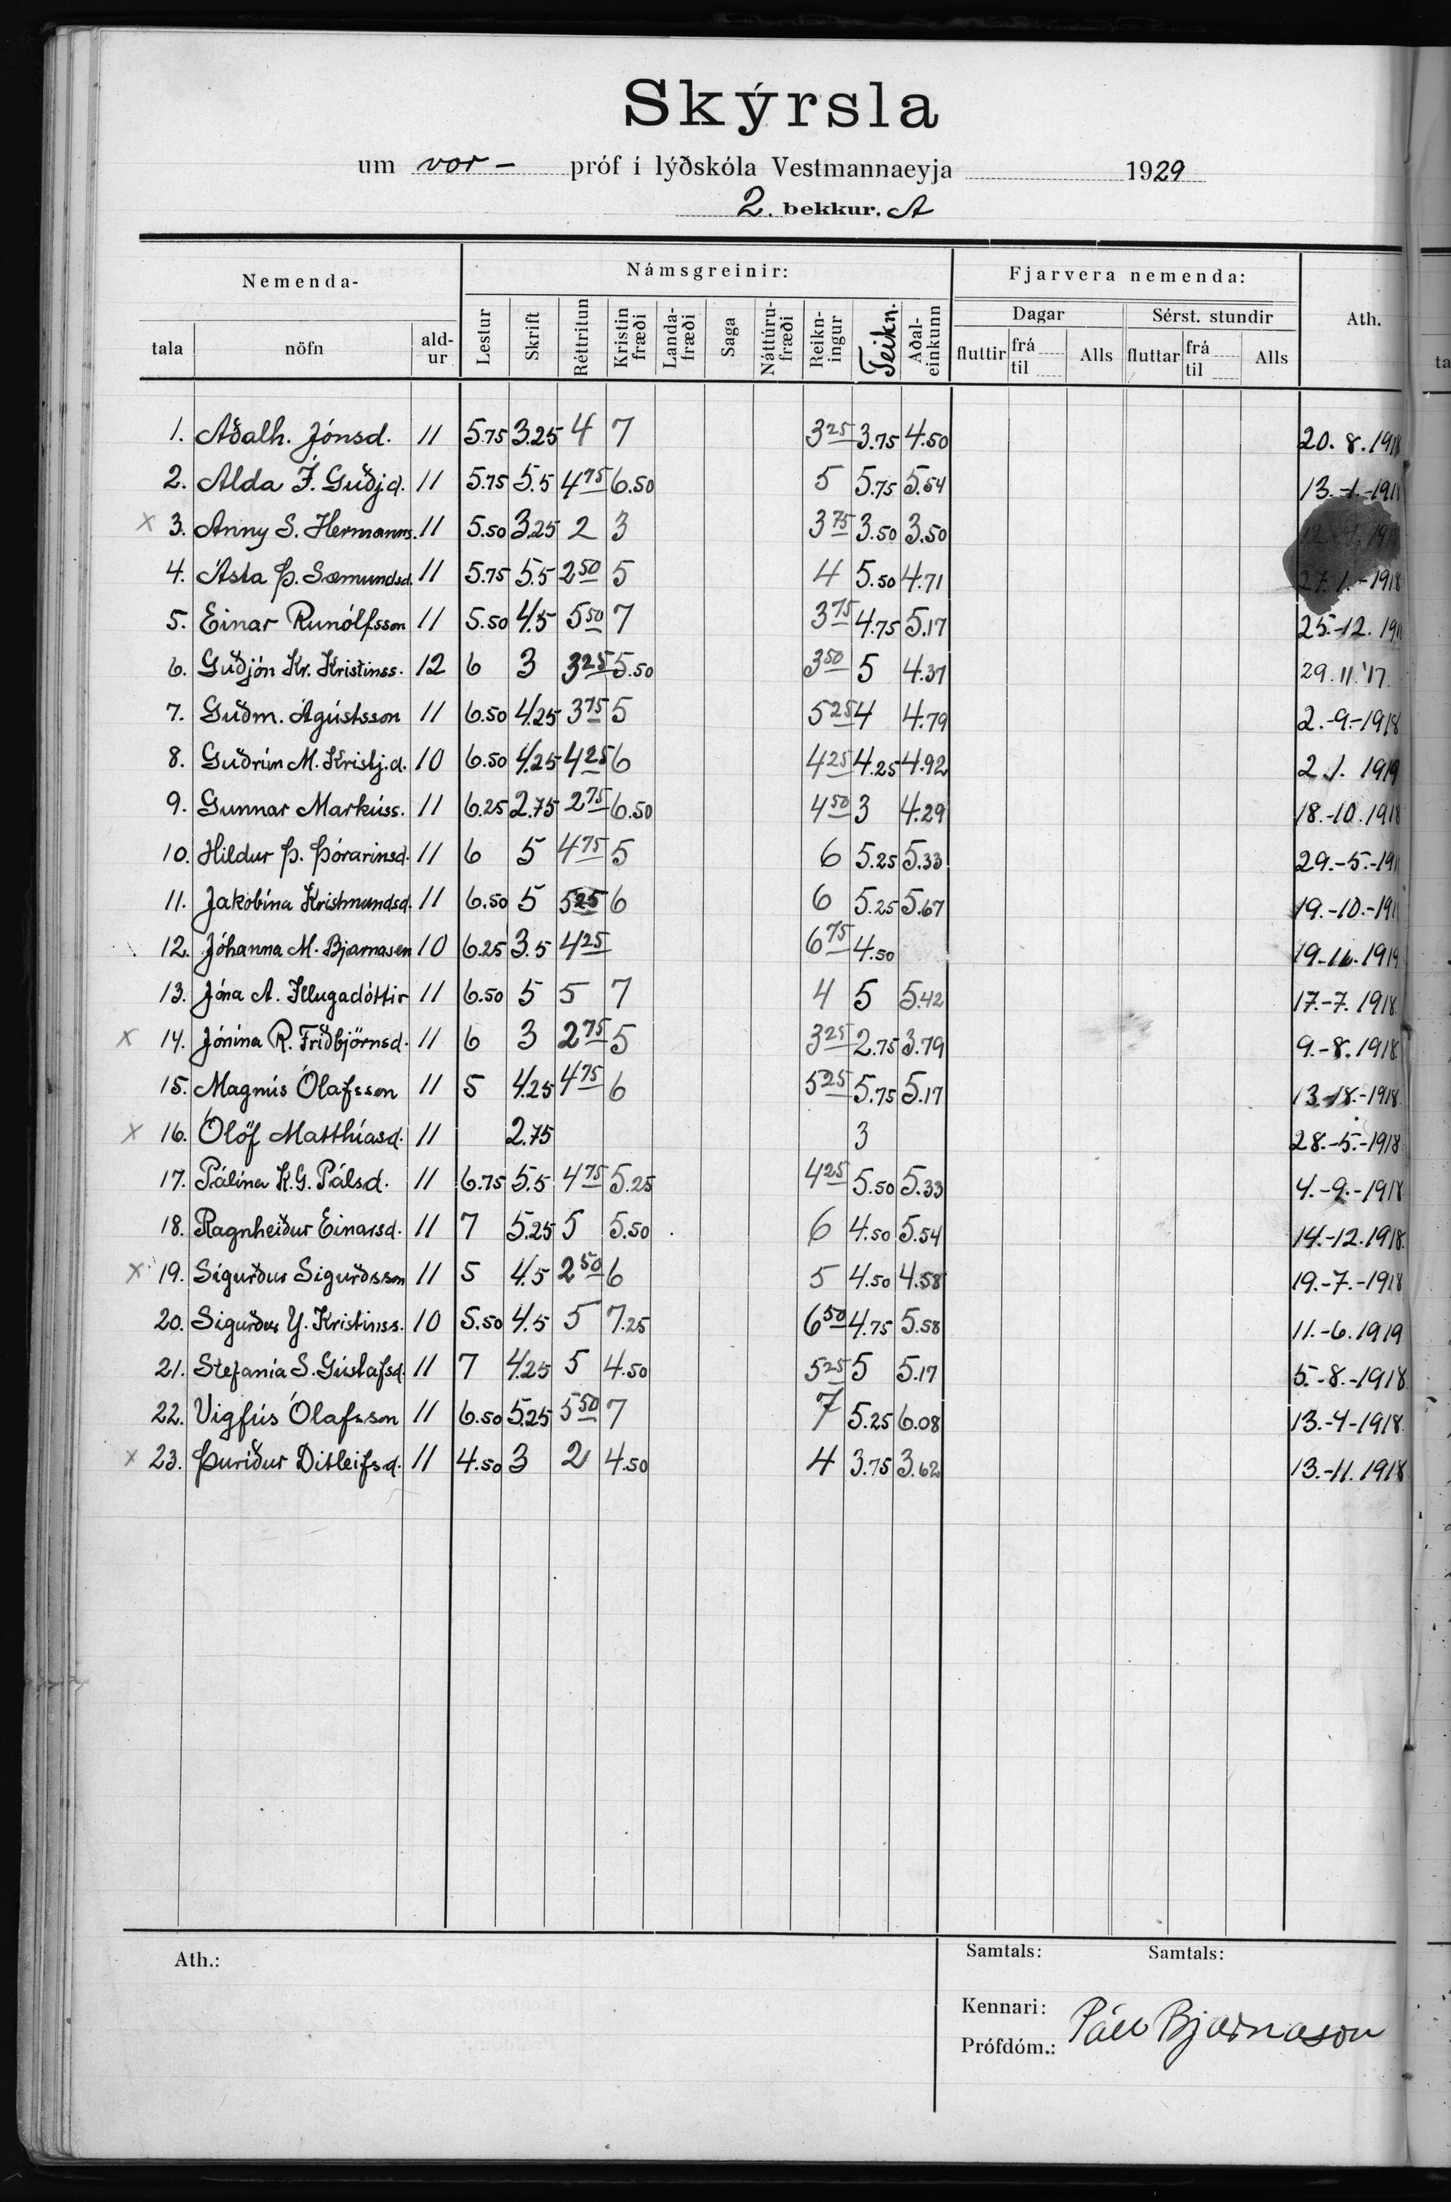 Skýrsla
um vor- próf í lýðskóla Vestmannaeyja 1929
2. bekkur. A
Nemenda- Námsgreinir: Fjarvera nemenda: Ath.
tala nöfn ald-ur Lestur Skrift Réttritun Kristin fræði Landa-fræði Saga Náttúru-fræði Reikn-ingur Teikn. Aðal-einkunn Dagar Sérst. stundir
fluttir frá til Alls fluttar frá til Alls
1. Aðalh. Jónsd. 11 5.75 3.25 4 7 3 25 3.75 4.50 20. 8. 1918
2. Alda Í. Guðjd. 11 5.75 5.5 4 75 6.50 5 5.75 5.54 13.-1.-191
x 3. Anny S. Hermanns. 11 5.50 3.25 2 3 3 75 3.50 3.50
4. Ásta Þ. Sæmundsd. 11 5.75 5.5 2 50 5 4 5.50 4.71 27. 1.-1918
5. Einar Runólfsson 11 5.50 4.5 5 50 7 3 75 4.75 5.17 25.-12. 191
6. Guðjón Kr. Kristinss. 12 6 3 3 25 5.50 3 50 5 4.37 29. 11.'17.
7. Guðm. Ágústsson 11 6.50 4.25 3 75 5 5 25 4 4.79 2.-9.-1918
8. Guðrún M. Kristj.d. 10 6.50 4.25 4 25 6 4 25 4.25 4.92 2.1. 1919
9. Gunnar Markúss. 11 6.25 2.75 2 75 6.50 4 50 3 4.29 18.-10. 1918
10. Hildur Þ. Þórarinsd. 11 6 5 4 75 5 6 5.25 5.33 29.-5.-191
11. Jakobína Kristmundsd. 11 6.50 5 5 25 6 6 5.25 5.67 19.-10.-191
12. Jóhanna M. Bjarnasen 10 6.25 3.5 4 25 6 75 4.50 1919
13. Jóna A. Illugadóttir 11 6.50 5 5 7 4 5 5.42 17.-7. 1918
x 14. Jónína R. Friðbjörnsd. 11 6 3 2 75 5 3 25 2.75 3.79 9.-8. 1918.
15. Magnús Ólafsson 11 5 4.25 4 75 6 5 25 5.75 5.17 1918.
x 16. Ólöf Matthíasd. 11 2.75 3 28.-5.-1918
17. Pálína K.G. Pálsd. 11 6.75 5.5 4 75 5.25 4 25 5.50 5.33 4.-9.-1918
18. Ragnheiður Einarsd. 11 7 5.25 5 5.50 6 4.50 5.54 14.-12. 1918.
x 19. Sigurður Sigurðsson 11 5 4.5 2 50 6 5 4.50 4.58 19.-7.-1918
20. Sigurður Y. Kristinss. 10 5.50 4.5 5 7.25 6 50 4.75 5.58 11.-6. 1919
21. Stefanía S. Gústafsd. 11 7 4.25 5 4.50 5 25 5 5.17 5.-8.-1918
22. Vigfús Ólafsson 11 6.50 5.25 5 50 7 7 5.25 6.08 13.-4-1918.
x 23. Þuríður Ditleifsd. 11 4.50 3 2 4.50 4 3.75 3.62 13.-11. 1918
Ath.: Samtals: Samtals:
Kennari: Páll Bjarnason
Prófdóm.: